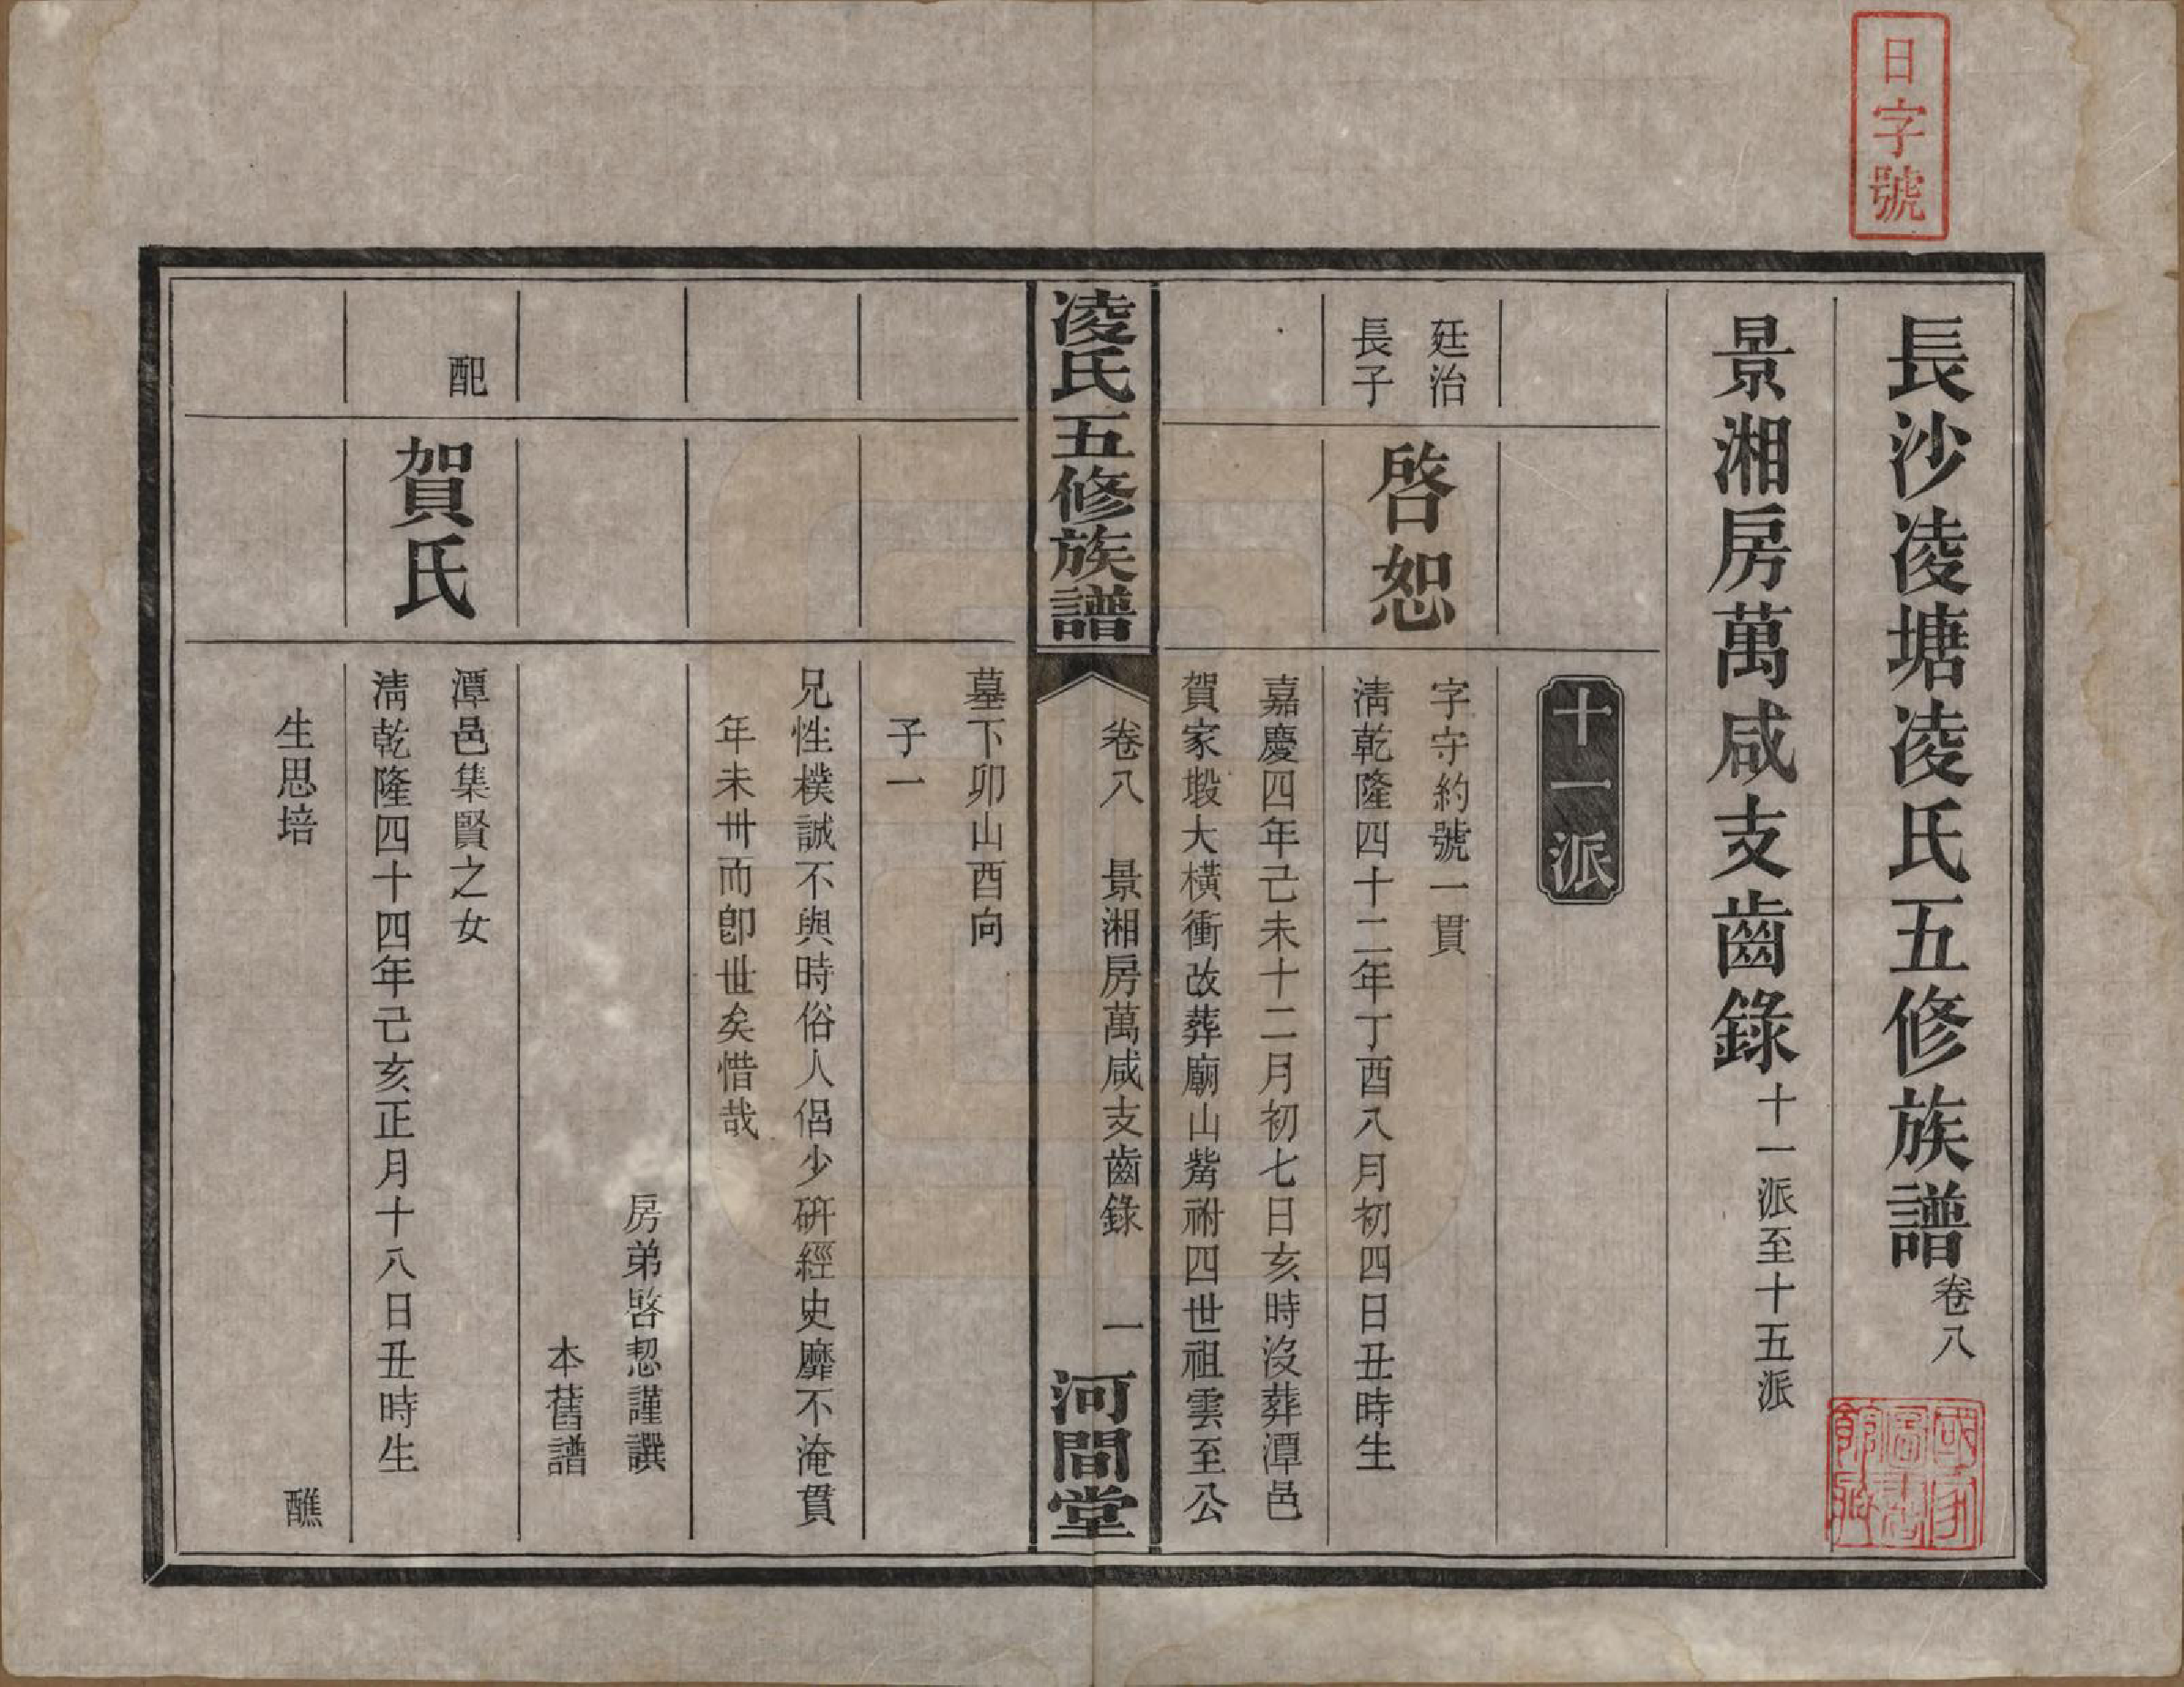 日字號
長沙凌塘凌氏五修族譜卷八
景湘房萬咸支齒錄十一派至十五派
十一派
廷治
長子
啓恕
字守約號一貫
淸乾隆四十二年丁酉八月初四日丑時生
嘉慶四年己未十二月初七日亥時沒葬潭邑
賀家塅大橫衝改葬廟山觜祔四世祖雲至公
凌氏五修族譜
卷八 景湘房萬咸支齒錄 一
河間堂
墓下卯山酉向
子一
兄性樸誠不與時俗人侶少硏經史靡不淹貫
年未卅而卽世矣惜哉
房弟啓恕謹譔
本舊譜
配
賀氏
潭邑集賢之女
淸乾隆四十四年己亥正月十八日丑時生
生思培
醮